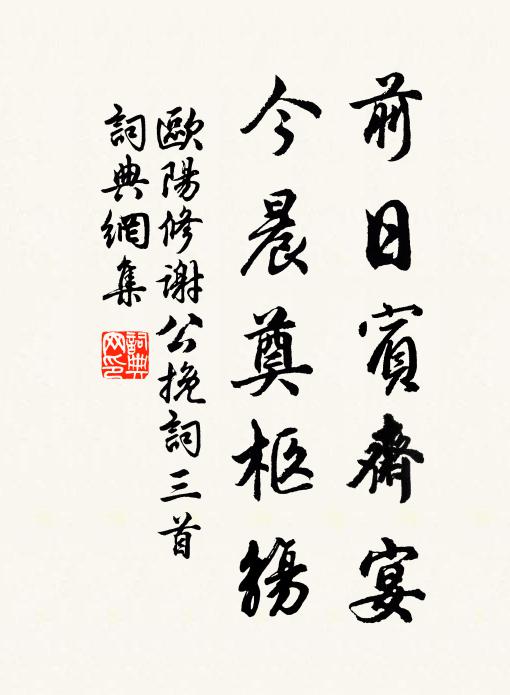 前日賓齋宴
今晨奠柩觴
歐陽修謝公挽詞三首
詞典網集
詞典网印